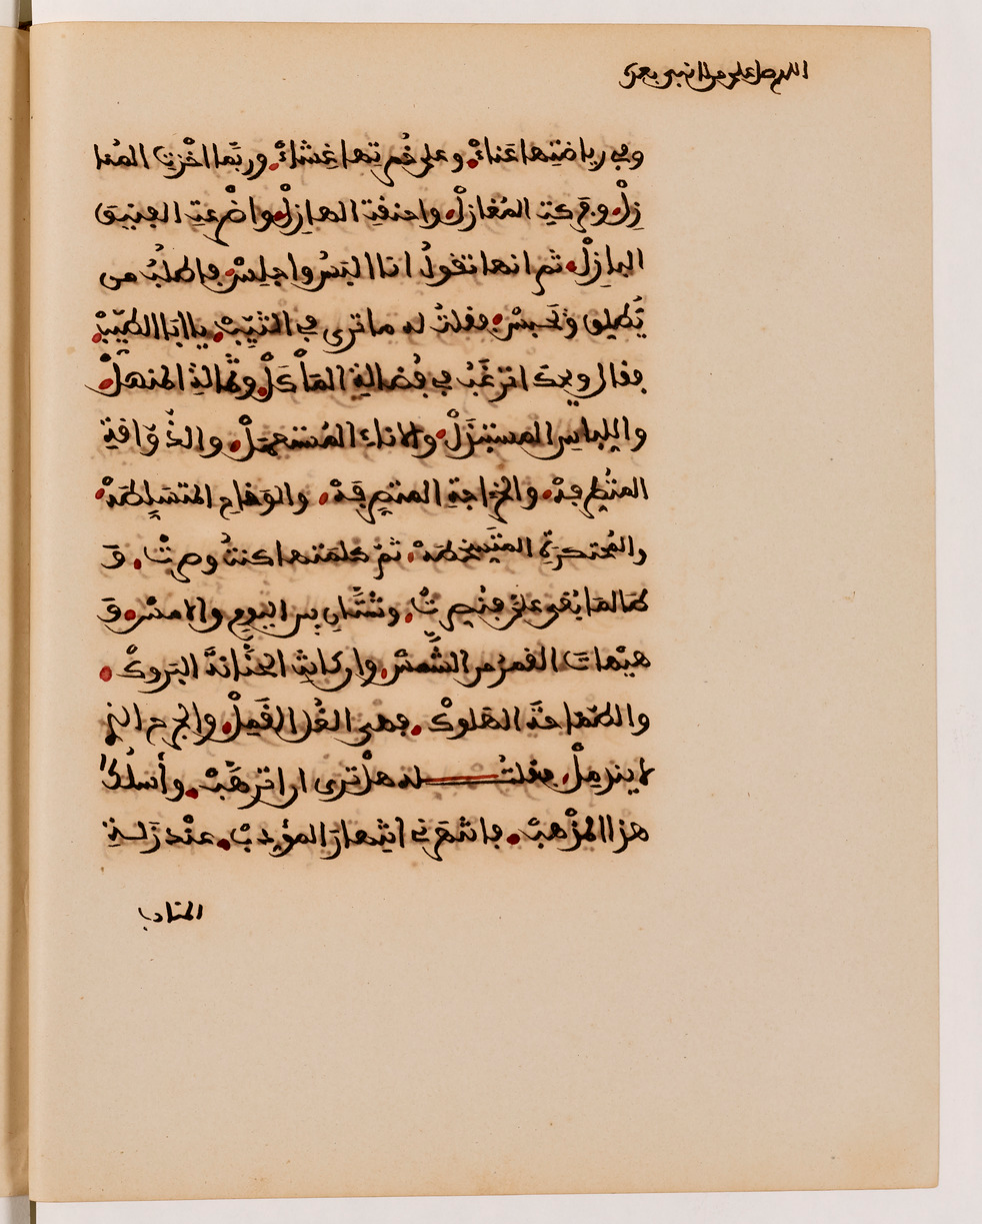 اللهم صل على من لا نبي بعده
وفي رياضتها عَناءْ وعلى خُبرتها غِشاءْ وربّما اخْزتِ المُنا
زِلْ وفركتِ المُغازلْ واحنقتِ الهازِلْ واضْرعتِ الفنيق
البازِلْ ثم انها تقولُ انا البَسُ واجلِسْ فاطلبُ من
يُطلِق ويَحبِسْ فقلتُ له ما ترى في الثَيِّبْ يا ابا الطيّبْ
فقال ويحك اترغَبُ في فُضالةِ المَأْكَلْ وثُمالةِ المنهَلْ
واللباسِ المستبذَلْ والاناءِ المُستعمَلْ والذوّاقةِ
المتُطرِفهْ والخرّاجةِ المتصرِفَهْ والوَقاحِ المتسَلِّطهْ
والمُحتكرةِ المتَسخِّطهْ ثمّ كلمتها كنتُ وصرتْ و
طالما بُغي عليّ فنُصرتْ وشتّان بين اليومِ والامسْ و
هيْهاتَ القمرُ من الشّمسْ وان كانتِ الحنّانةَ البَروكْ
والطمّاحةَ الهَلوكْ فهي الغُل القَمِلْ والجرح الذي
لا يندمِلْ فقلتُ له هلْ ترى ان اترهّبْ وأسلُكَ
هذا المذْهبْ فانتهَرني انتِهارَ المؤدِبْ عنْد زَلةِ
المتادب